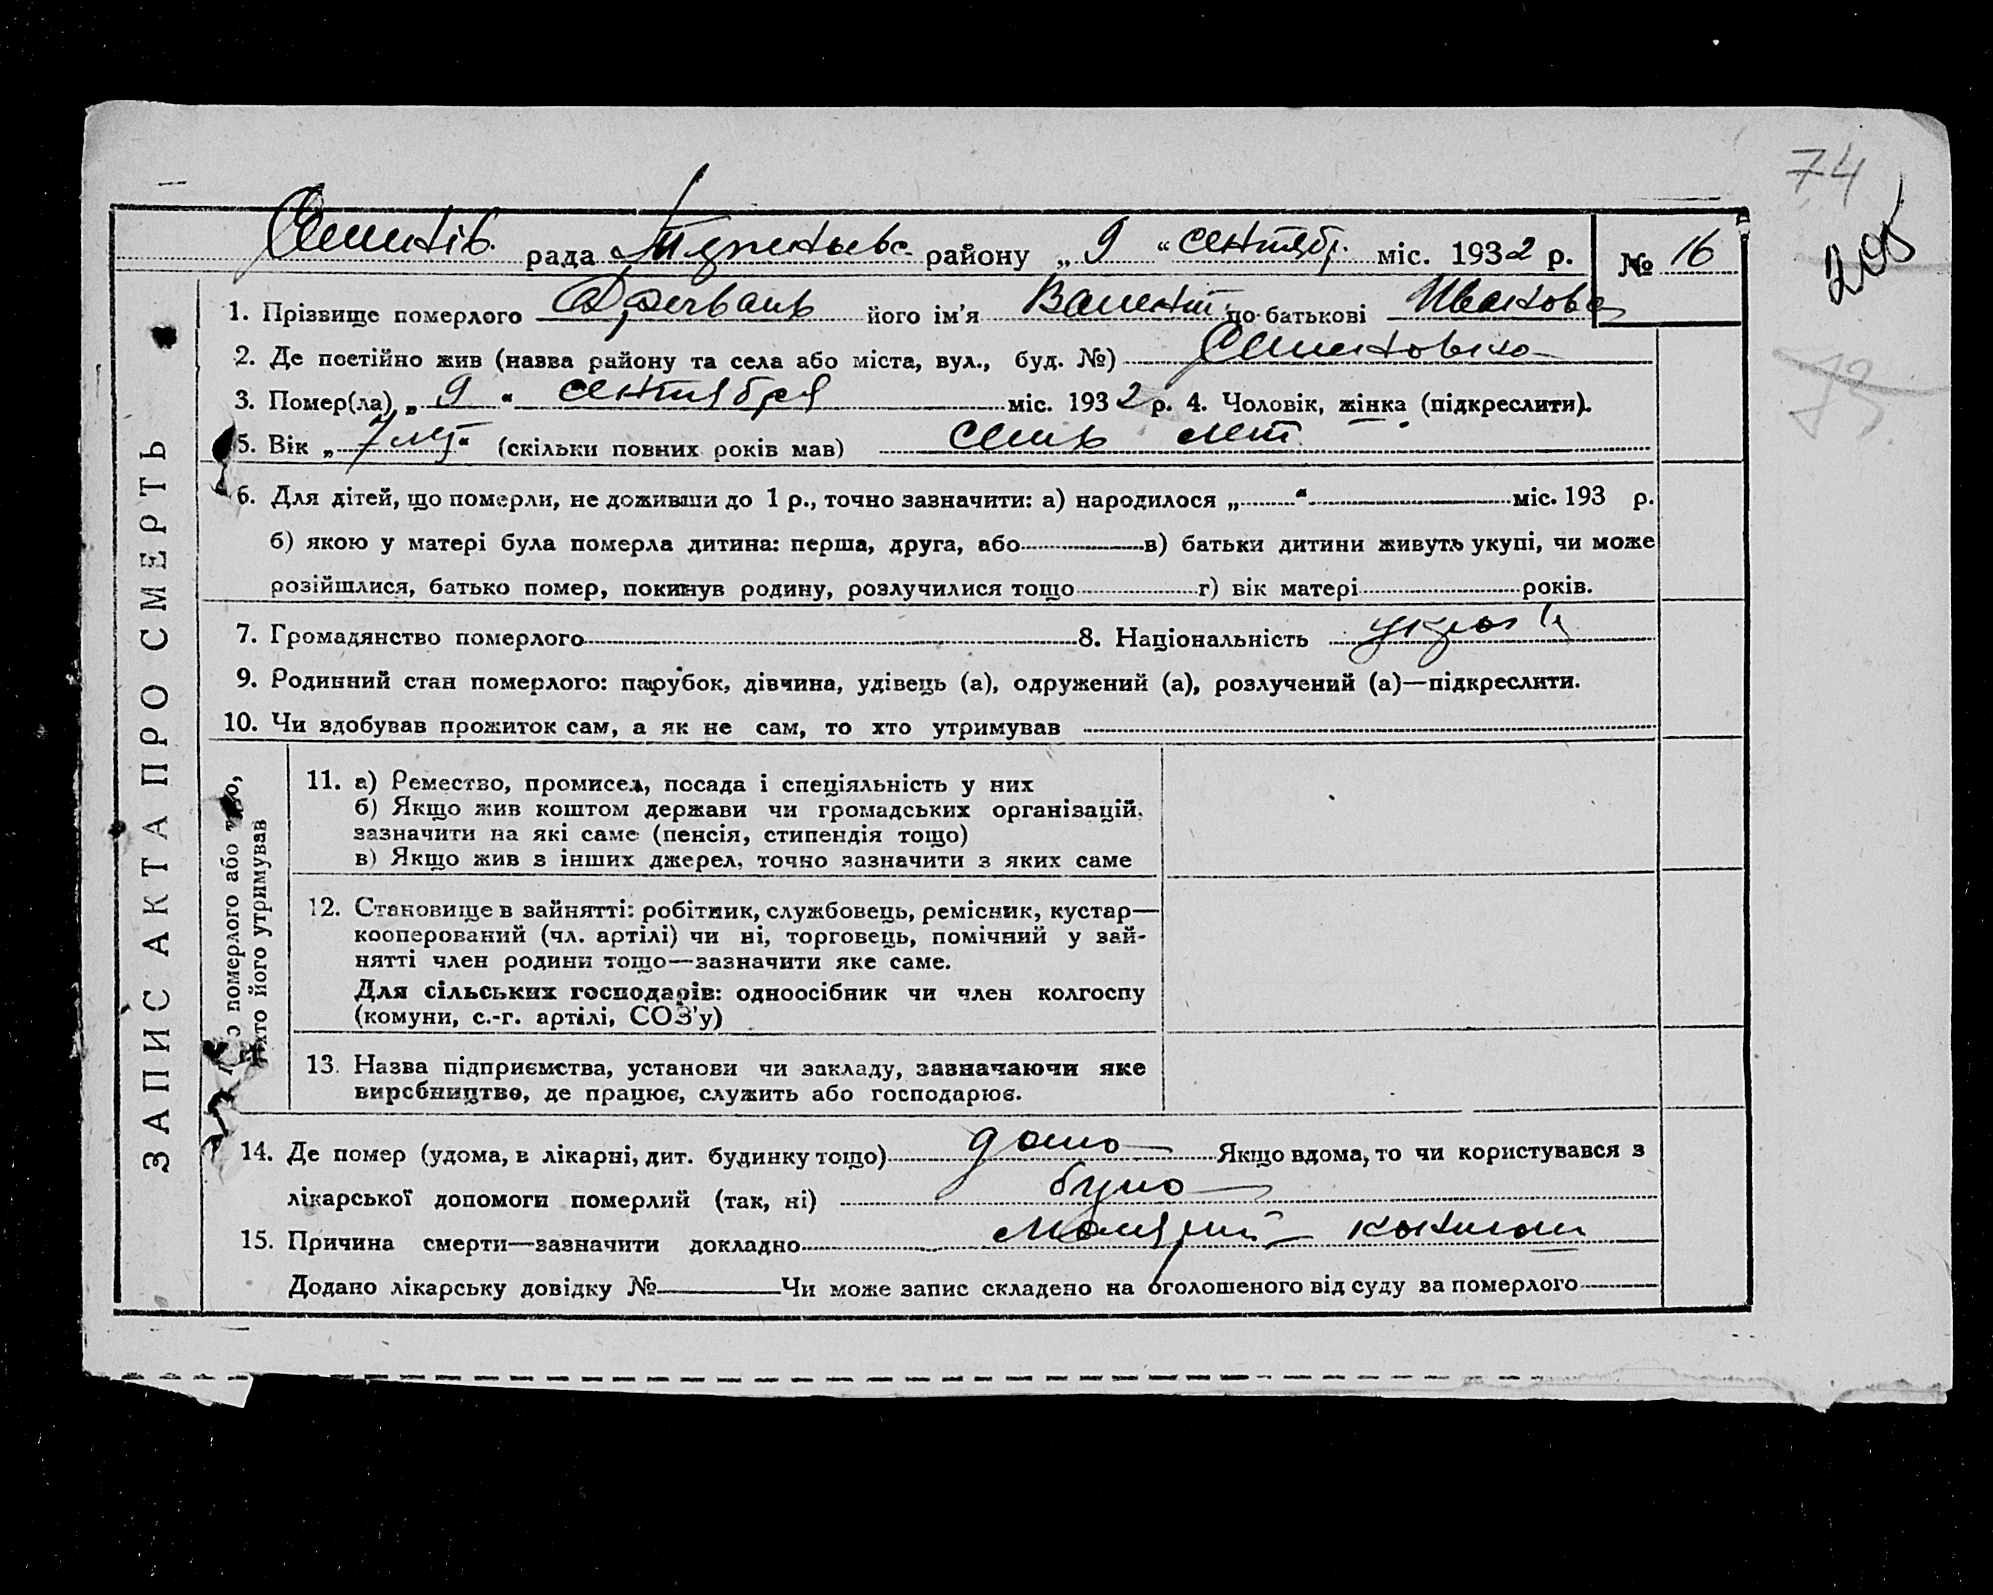 74
205
рада района „ 9 “ сентябр. міс. 1932 р. № 16
1. Прізвище померлого його ім'я Валент. по батькові Иванова
2. Де постійно жив (назва району та села або міста, вул., буд. №)
3. Помер(ла) „ 9 “ сентября міс. 1932 р. 4. Чоловік, жінка (підкреслити).
5. Вік „ 7 лет “ (скільки повних років мав) семь лет
6. Для дітей, що померли, не доживши до 1 р., точно зазначити: а) народилося „ “ міс. 193 р.
б) якою у матері була померла дитина: перша, друга, або в) батьки дитини живуть укупі, чи може
розійшлися, батько помер, покинув родину, розлучилися тощо г) вік матері років.
7. Громадянство померлого 8. Національність
9. Родинний стан померлого: парубок, дівчина, удівець (а), одружений (а), розлучений (а)—підкреслити.
10. Чи здобував прожиток сам, а як не сам, то хто утримував
11. а) Ремество, промисел, посада і спеціяльність у них
б) Якщо жив коштом держави чи громадських організацій,
зазначити на які саме (пенсія, стипендія тощо)
в) Якщо жив з інших джерел, точно зазначити з яких саме
12. Становище в зайнятті: робітник, службовець, ремісник, кустар—
кооперований (чл. артілі) чи ні, торговець, помічний у зай-
нятті член родини тощо—зазначити яке саме.
Для сільських господарів: одноосібник чи член колгоспу
(комуни, с.-г. артілі, СОЗ'у)
13. Назва підприємства, установи чи закладу, зазначаючи яке
виробництво, де працює, служить або господарює.
14. Де помер (удома, в лікарні, дит. будинку тощо) дома Якщо вдома, то чи користувався з
лікарської допомоги померлий (так, ні) було
15. Причина смерти—зазначити докладно
Додано лікарську довідку № Чи може запис складено на оголошеного від суду за померлого
ЗАПИС АКТА ПРО СМЕРТЬ
померлого або того,
хто його утримував